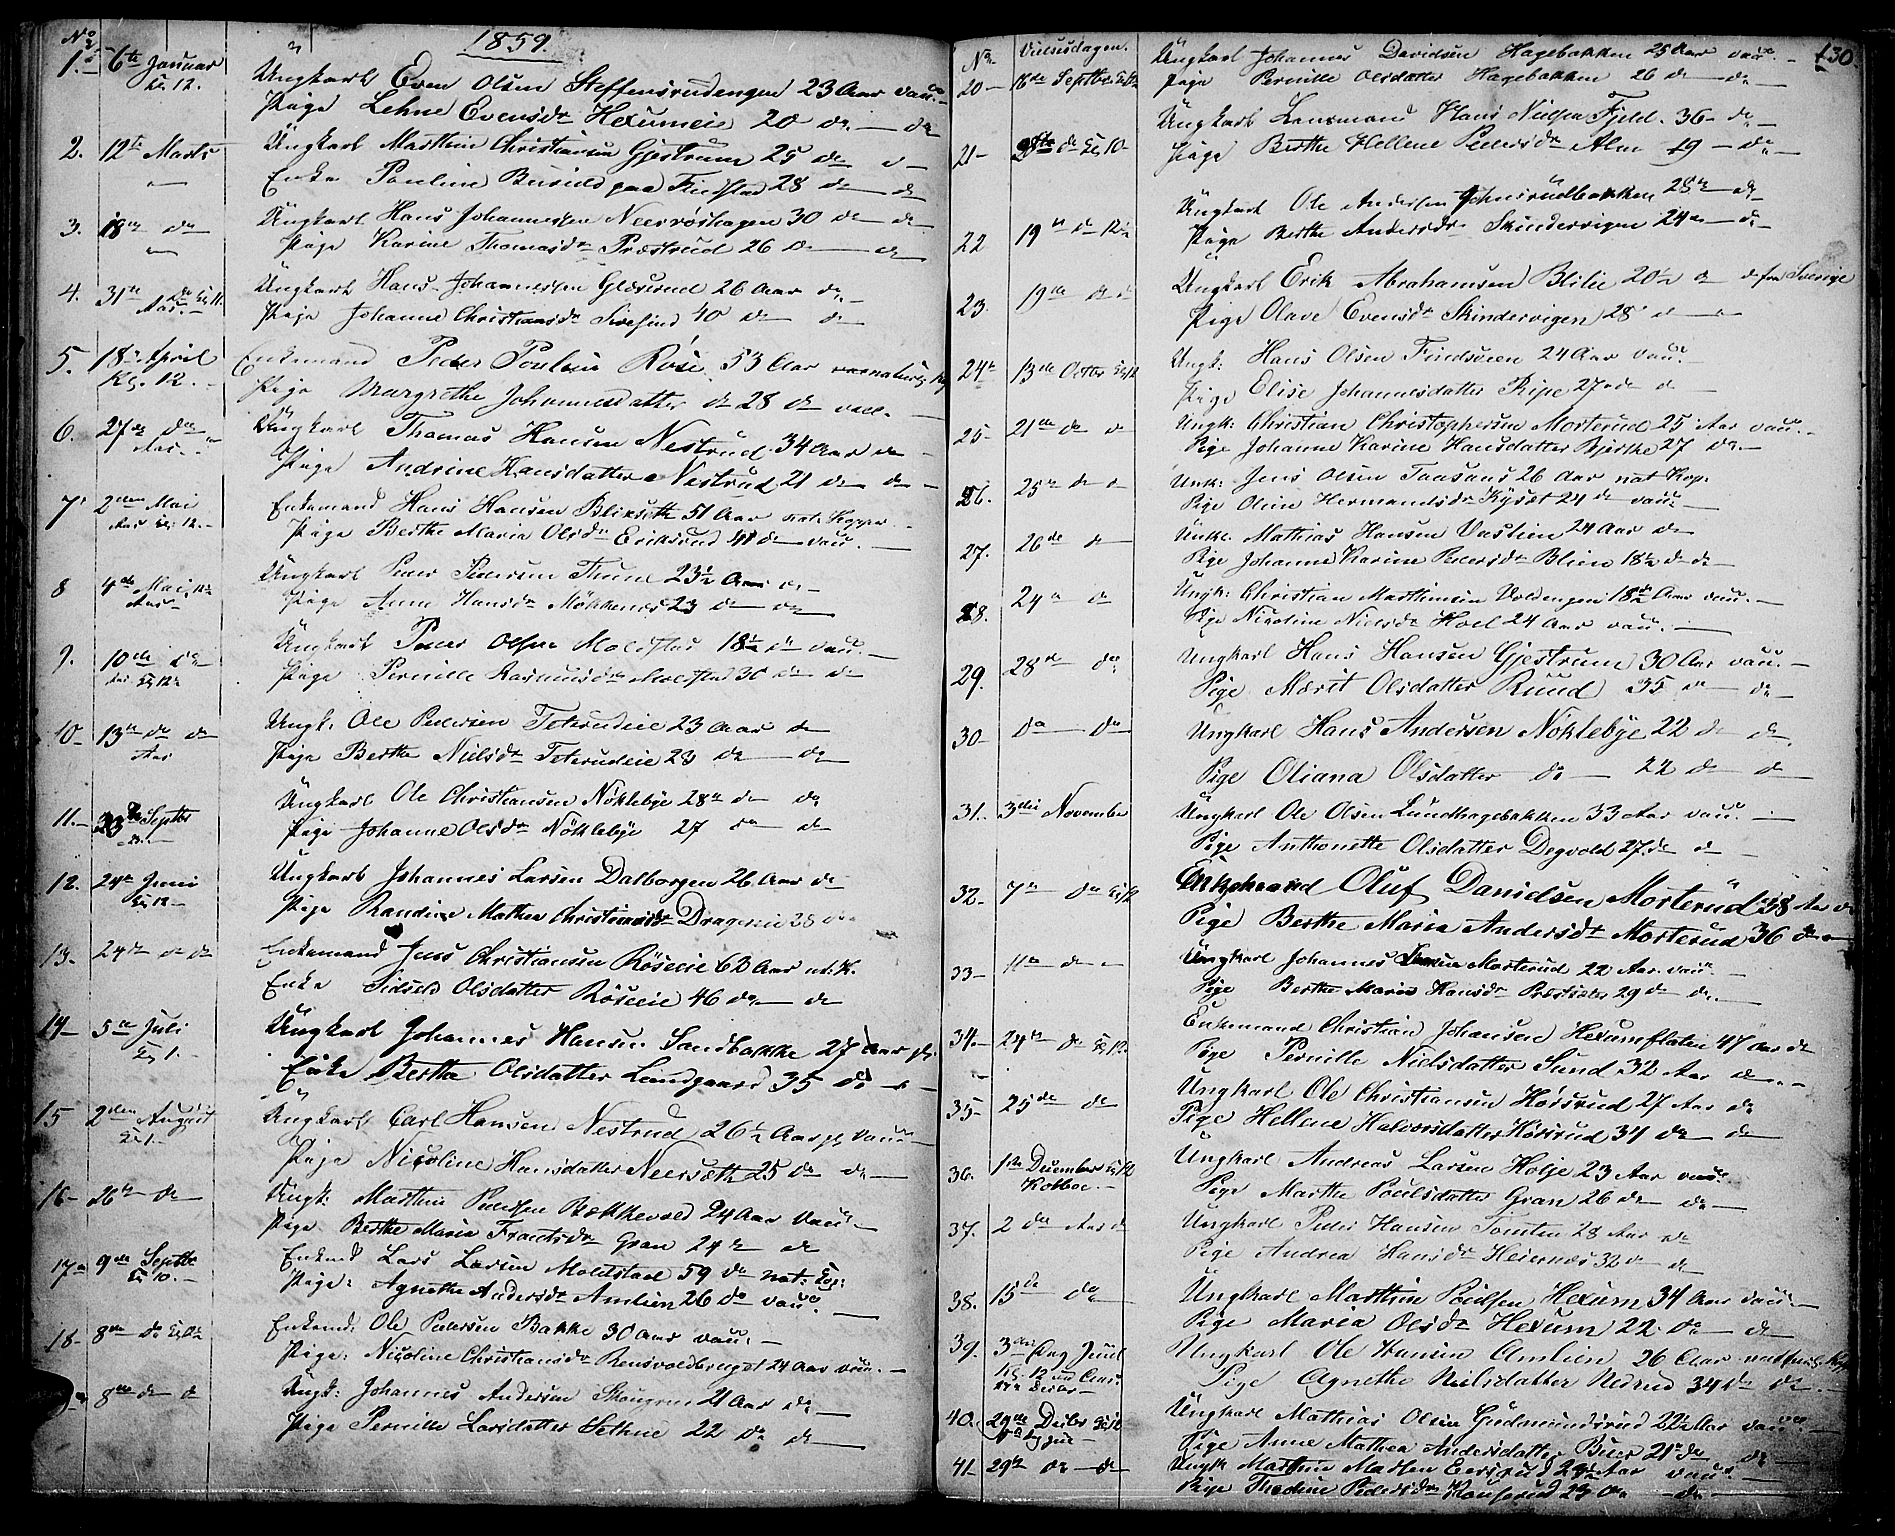 1859.
No
1. 6te Januar Ungkarl Even Olsen Steffensrudengen 23 Aar vac.
Kl. 12. Pige Lehne Evensdr Hexumeie 20 do do
2. 12te Marts Ungkarl Marthin Christiansen Gjestrum 25 do
Enke Pauline paa Findstad 28 do do
3. 18de do Ungkarl Hans Johannessen Neerröshagen 30 do do
Pige Karine Thomasdr Præstrud 26 do do
4. 31te do Kl. 11 Ungkarl Hans Johannessen Glæsrud 26 Aar do
Aas Pige Johanne Christiansdr Sivesind 40 do do
5. 18de April Enkemand Peder Poulsen Röise 53 Aar
Kl. 12. Pige Margrethe Johannesdatter do 28 do vac.
6. 27de do Ungkarl Thomas Hansen Nestrud 34 Aar do
Aas Pige Andrine Hansdatter Nestrud 21 do do
7 2den Mai Enkemand Hans Hansen Blikseth 51 Aar nat. Kopper
Aas Kl. 12. Pige Berthe Maria Olsdr Eriksrud 41 do vac.
8 4de Mai Ungkarl Peder Pedersen Thune 23½ Aar do
Aas Pige Anne Hansdr Mökkenes 23 do do
9. 10de do Ungkarl Peder Olsen Molstad 18½ do vac.
Aas Kl. 12 Pige Pernille Rasmusdr Molstad 30 do do
10 13de do do Ungk: Ole Pedersen Teterudeie 23 Aar do
Aas Pige Berthe Nielsdr Teterudeie 23 do do
11. 23de Septbr Ungkarl Ole Christiansen Nöklebye 28 do do
Pige Johanne Olsdr Nöklebye 27 do do
12. 24de Juni Ungkarl Johannes Larsen Dalborgen 26 Aar do
Kl. 12 Pige Randine Mathea Christiansdr 28 do
13. 24de do do Enkemand Jens Christiansen Röseeie 63 Aar nt. K.
Enke Sidsele Olsdatter Röseeie 46 do do
14 5te Juli Ungkarl Johannes Hansen Sandbakke 27 Aar
Kl. 1. Enke Berthe Olsdatter Lundgaard 35 do
15 2den August Ungkarl Carl Hansen Nestrud 26½ Aar vac.
Kl. 1. Pige Nicoline Hansdatter Neersæth 25 do do
16 26de do Ungk: Marthin Pedersen Bækkevold 24 Aar vac.
Pige Berthe Maria Frantsdr Gran 24 do do
17 9de Septbr Enkemd Lars Larsen Molstad 59 do nat: Kop:
Kl. 10. Pige: Agnethe Andersdr Amlien 26 do vac.
18 8de do Enkemd: Ole Pedersen Bakke 30 Aar vac.
Pige: Nicoline Christiansdr Rensvoldbregst 24 Aar vac.
8de do do Ungk: Johannes Andersen Skougrud 21 Aar do
Pige Pernille Larsdatter Sethne 22 do do
No Vielsesdagen. 130.
20 16de Septbr Ungkarl Johannes Davidsen Hagebakken 25 Aar vac.
Pige Pernille Olsdatter Hagebakken 26 do do
21 do Kl. 10 Ungkarl Lensmand Hans Nielsen Fjeld. 36 do
Pige Berthe Hellene Pedersdr Alm 19 do
22 19de do Ungkarl Ole Andersen Johnsrudbakken 28 do
Pige Berthe Andersdr Skindervigen 24 do do
23. 19de do Ungkarl Erik Abrahamsen Blilie 20½ do fra Sverige
Pige Olave Evensdr Skindervigen 28
24 13de Octbr Ungk: Hans Olsen Findsveen 24 Aar vac.
Pige Elise Johannesdatter Ripe 27 do
25 21de do Ungk: Christian Christophersen Morterud 25 Aar vac.
Pige Johanne Karine Hansdatter Bjerke 27 do
26. 25de do Unk: Jens Olsen Taasand 26 Aar nat Kop.
Pige Oline Hermandsdr Kyset 24 do vac.
27. 26de do Unk. Mathias Hansen Vestlien 24 Aar do
Pige Johanne Karine Pedersdr Blien 18½ do do
28. 24de do Ungk: Christian Marthinsen Voldengen 18½ Aar vac.
Pige Nicoline Nielsdr Hoel 24 Aar vac.
29. 28de do Ungkarl Hans Hansen Gjestrum 30 Aar vac.
Pige Marit Olsdatter Ruud 35 do do
30 do do Ungkarl Hans Andersen Nöklebye 22 do do
Pige Oliana Olsdatter do 22 do do
31. 3die November Ungkarl Ole Olsen Lundhagebakken 33 Aar vac.
Pige Anthonette Olsdatter Degvold 27 do do
32 7de do Enkemand Oluf Danielsen Morterud 38 Aar do
Pige Berthe Maria Andersdr Morterud 36 do
33 11te do Ungkarl Johannes Morterud 22 Aar vac.
Pige Berthe Maria Hansdr Præstsæter 29 do do
34. 24de do Enkemand Christian Johansen Hexumflaten 47 Aar do
Pige Pernille Nielsdatter Sund 32 Aar do
35 25de do Ungkarl Ole Christiansen Hörsrud 27 Aar do
Pige Hellene Halvorsdatter Hörsrud 34 do do
36. 1ste December Ungkarl Andreas Larsen Holje 23 Aar vac.
Kolboe. Pige Marthe Poulsdatter Gran 26 do do
37. 2den Aas Ungkarl Peder Hansen Tomten 28 Aar do
Pige Andrea Hansdr Heiernes 32 do do
38. 15de do Ungkarl Marthin Poulsen Hexum 34 Aar vac.
Pige Maria Olsdr Hexum 22 do do
39. 3die Dag Juul Ungkarl Ole Hansen Amlien 26 Aar
Kl. 12 Pige Agnethe Nilsdatter Nedrud 34 do do
40. 29de Decbr Ungkarl Mathias Olsen Gudmundsrud 22½ Aar vac.
Pige Anne Mathea Andersdatter 21 do do
41 29de do do Ungk Marthin Madsen Eersrud 24½ Aar vac.
Pige Thorine Pedersdr 23 do do